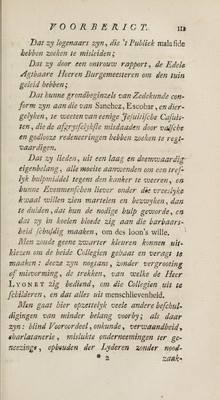 VOORBERICHT. III
Dat zy logenaars zyn, die 't Publiek malafide
hebben zoeken te misleiden;
Dat zy door een ontrouw rapport, de Edele
Agtbaare Heeren Burgemeesteren om den tuin
geleid hebben;
Dat hunne grondbeginzels van Zedekunde con-
form zyn aan die van Sanchez, Escobar, en dier-
gelyken, te weeten van eenige Jesuïtische Casuïs-
ten, die de afgryslykste misdaaden door valsche
en godlooze redeneeringen hebben zoeken te regt-
vaardigen.
Dat zy lieden, uit een laag en doemwaardig
eigenbelang, alle moeite aanwenden om een tref-
lyk hulpmiddel tegen den kanker te weeren, en
hunne Evenmenschen liever onder die vreeslyke
kwaal willen zien martelen en bezwyken, dan
te duiden, dat hun de nodige hulp geworde, en
dat zy in koelen bloede zig aan die barbaars-
heid schuldig maaken, om des loon's wille.
Men zoude geene zwarter kleuren konnen uit-
kiezen om de beide Collegien gehaat en veragt te
maaken: deeze zyn nogtans, zonder vergrooting
of misvorming, de trekken, van welke de Heer
LYONET zig bediend, om die Collegien uit te
schilderen, en dat alles uit menschlievenheid.
Men gaat hier opzettelyk veele andere beschul-
digingen van minder belang voorby; als daar
zyn: blind Vooroordeel, onkunde, verwaandheid,
charlatanerie, mislukte onderneemingen ter ge-
neezinge, ophouden der Lyderen zonder nood-
* 2 zaak-